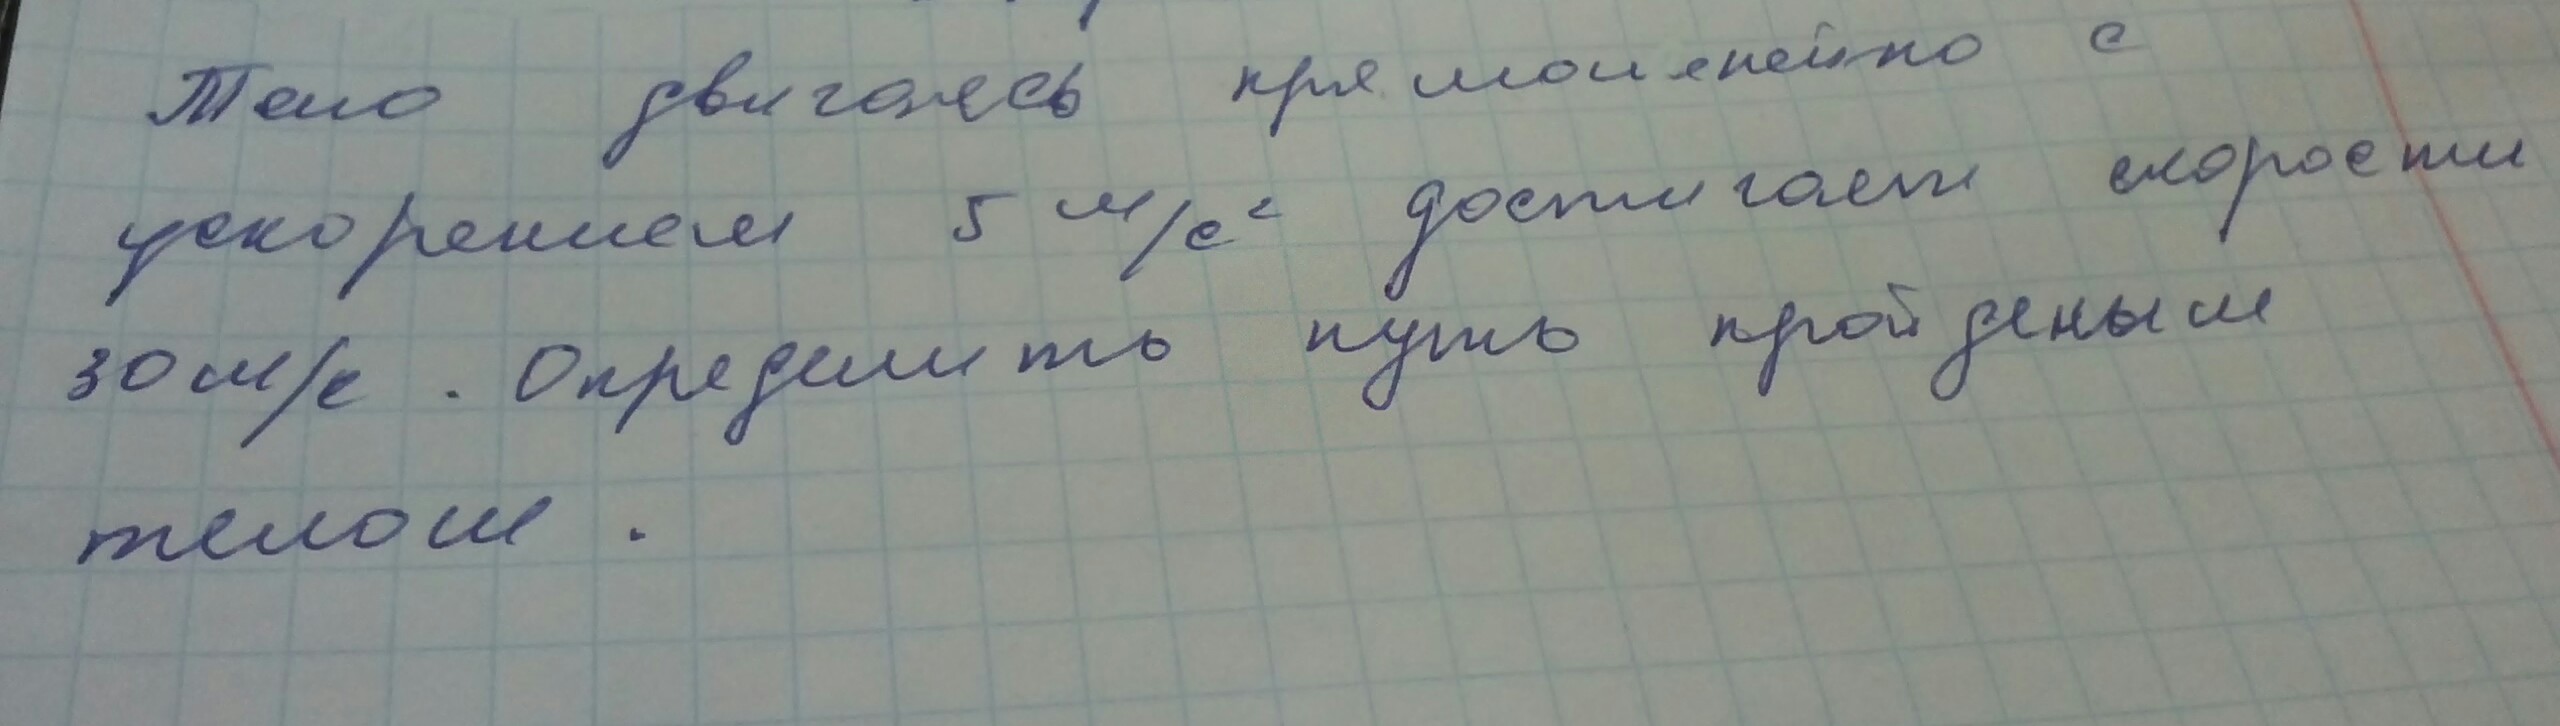 Тело двигаясь прямолинейно с
ускорением 5 м/с² достигает скорости
30 м/с. Определить путь пройденым
телом.